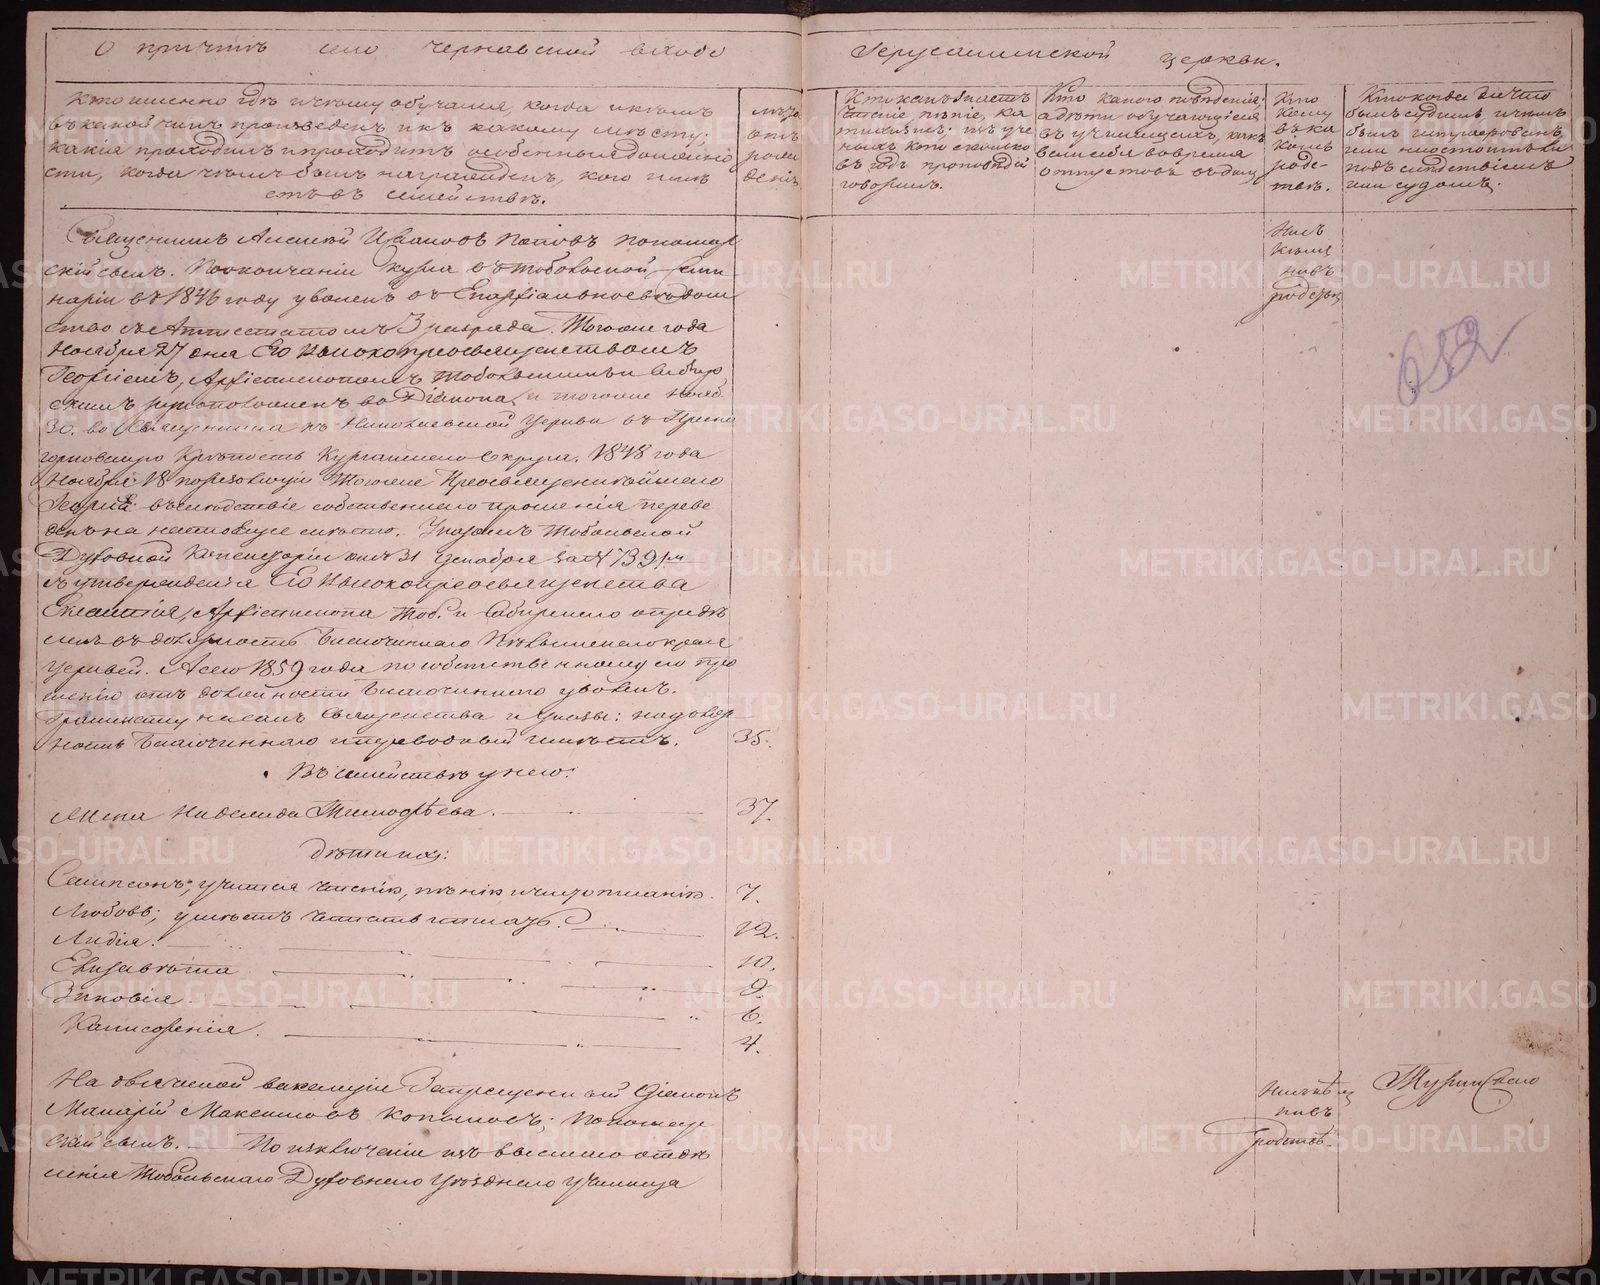 О причтѣ село Чернавской входо Іерусалимской церкви.
Кто именно гдѣ и чему обучался, когда и кѣмъ
въ какой чинъ произведенъ и къ какому мѣсту;
какія проходилъ и проходитъ особенныя должно
сти, когда чѣмъ былъ награжденъ, кого имѣ
етъ въ семействѣ.
лѣта
отъ
рож
денія
Кто какъ знаетъ
чтеніе, пѣніе, ка
тихизисъ; изъ уче
ныхъ кто сколько
въ годъ проповѣдей
говорилъ.
Кто какого поведенія;
а дѣти обучающіеся
въ училищахъ, какъ
вели себя во время
отпусковъ въ домы
Кто
кому
въ ка
комъ
родс
твѣ.
Кто когда за что
былъ судимъ, и чѣмъ
былъ штрафованъ,
или не состоитъ ли
подъ слѣдствіемъ
или судомъ.
Священникъ Алексѣй Ивановъ Поповъ Пономар
скій сынъ. По окончаніи курса въ Тобольской Семи
наріи въ 1846 году уволенъ въ Епархіальное вѣдом
ство съ Аттестатомъ 3 разряда. Того же года
Ноября 27 дня Его Высокопреосвященствомъ
Георгіемъ, Архіепископомъ Тобольскимъ и Сибир
скимъ рукоположенъ во Діакона, и того же Нояб.
30. во Священника къ Николаевской Церкви въ Прѣсно
горьковскую Крѣпость Курганскаго Округа. 1848 года
Ноября 18 по резолюціи того же Преосвященнѣйшаго
Георгія въ слѣдствіе собственнаго прошенія переве
денъ на настоящее мѣсто. Указомъ Тобольской
Духовной Консисторіи отъ 31 Декабря за № 7391м
съ утвержденія Его Высокопреосвященства
Евлампія, Архіепископа Тоб. и Сибирскаго опредѣ
ленъ въ должность Благочиннаго края
Церквей. А сего 1859 года по собственному его про
шенію отъ должности Благочиннаго уволенъ.
Грамоту на санъ Священства и Указы: на долж
ность Благочиннаго и переводный имѣетъ. 35.
Въ семействѣ у него:
Жена Надежда Тимофѣева. 37.
дѣти ихъ:
Сампсонъ; учится чтенію, пѣнію и чистописанію. 7.
Любовь; умѣетъ читать и писать. 12.
Лидія. 10.
Елизавета 9.
Зиновія. 6.
Калисфенія. 4.
На дьяческой вакансіи Запрещенный Діаконъ
Макарій Максимовъ Копыловъ; Пономар
скій сынъ. По исключеніи изъ высшаго отдѣ
ленія Тобольскаго Духовнаго Уѣзднаго училища
Ни съ
кѣмъ
нѣтъ
родства
652
нѣтъ
родства.